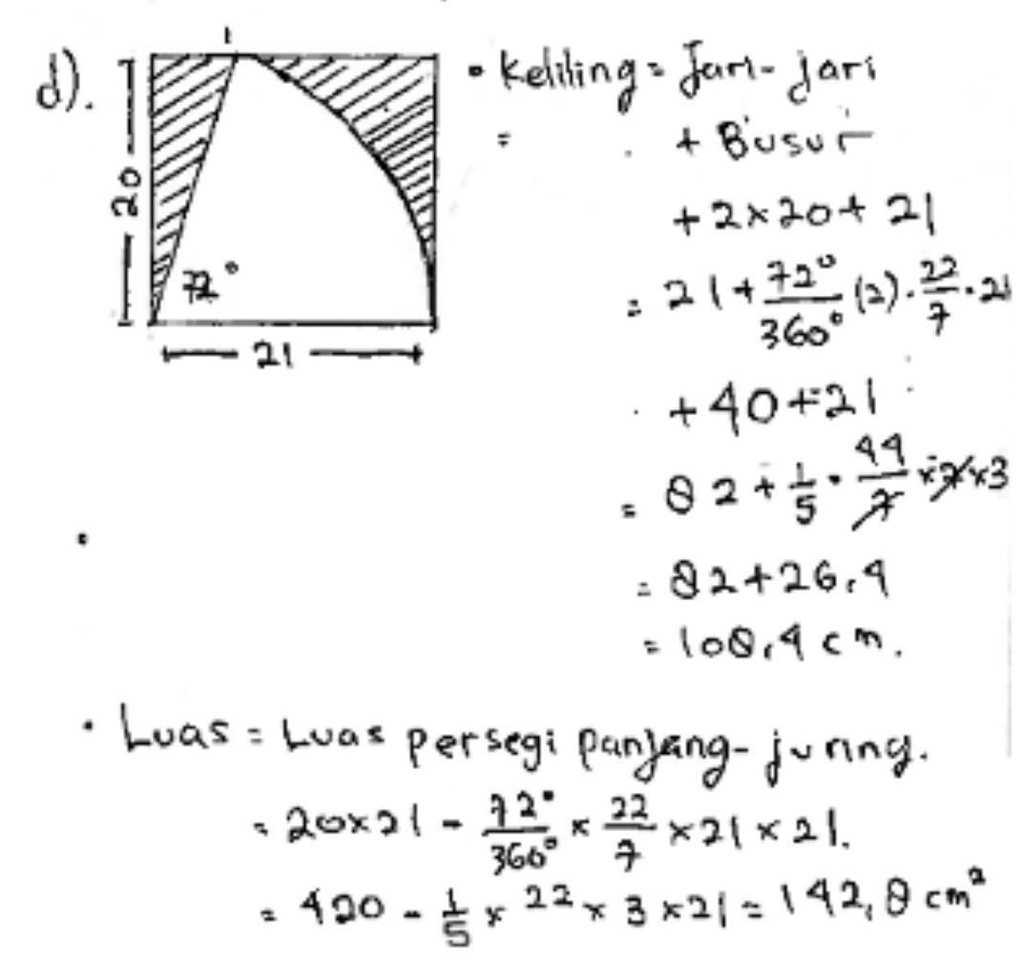 d).
1
20
72°
21
• Keliling = Jari-jari
= + Busur
+ 2 × 20 + 21
= 21 + 72°/360° (2) . 22/7 . 21
+ 40 + 21
= 82 + 1/5 . 44/7 × 7 × 3
= 82 + 26,4
= 108,4 cm.
• Luas = Luas persegi panjang - juring.
= 20×21 - 72°/360° × 22/7 × 21 × 21.
= 420 - 1/5 × 22 × 3 × 21 = 142,8 cm²